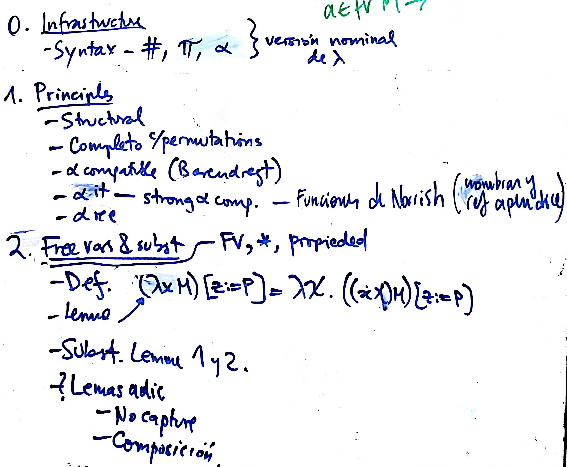 a ∈ fv M →
0. Infrastructure
- Syntax - #, π, α } versión nominal
de λ
1. Principles
- Structural
- Completo c/permutations
- α compatible (Barendregt)
- α it - strong α comp. - Funciones de Norrish (nombrar y
ref apéndice)
- α rec
2. Free vars & subst - FV, *, propiedad
- Def. (λxM)[z:=P] = λx. ((x x)M)[z:=P]
- Lema
- Subst. Lemma 1 y 2.
- Lemas adic
- No capture
- Composición